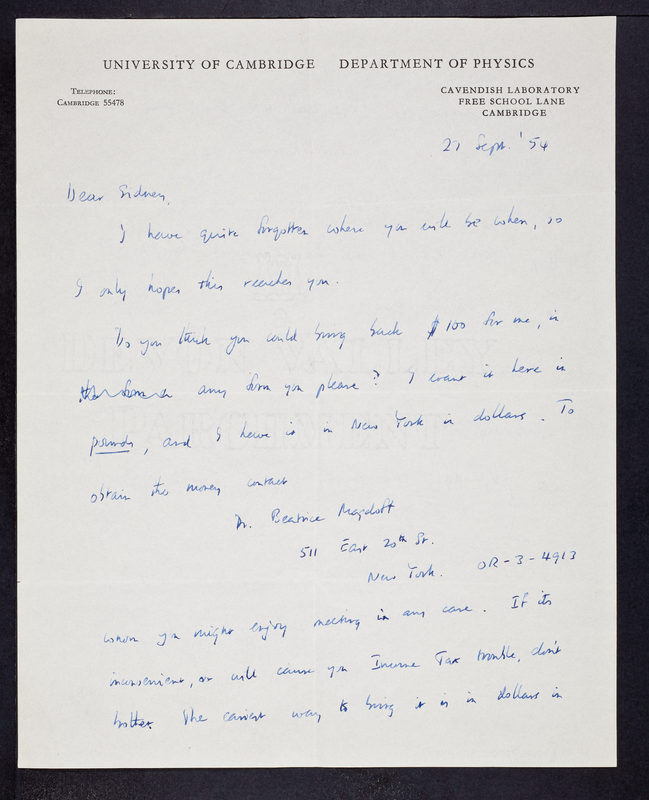 UNIVERSITY OF CAMBRIDGE DEPARTMENT OF PHYSICS
TELEPHONE:
CAMBRIDGE 55478
CAVENDISH LABORATORY
FREE SCHOOL LANE
CAMBRIDGE
Sept. '54
Dear Sidney,
I have quite forgotten where you will be when, so
I only hopes this reaches you.
Do you think you could bring back $100 for me, in
any form you please? I want it here in
pounds, and I have it in New York in dollars. To
obtain the money contact
Dr. Beatrice Magdoff
511 East 20th St.
New York. OR-3-4913
whom you might enjoy meeting in any case. If its
inconvenient, or will cause you Income Tax trouble, don't
bother. The easiest way to bring it is in dollars in